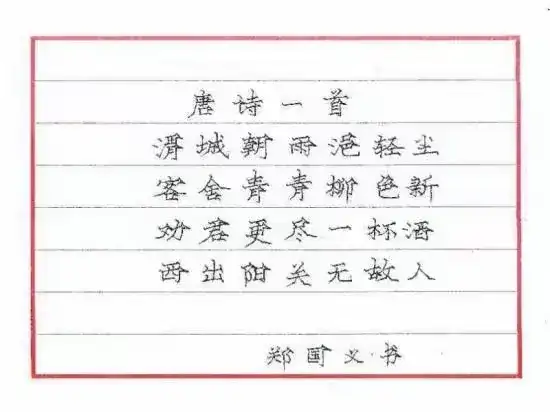 唐诗一首
渭城朝雨浥轻尘
客舍青青柳色新
劝君更尽一杯酒
西出阳关无故人
郑国义书